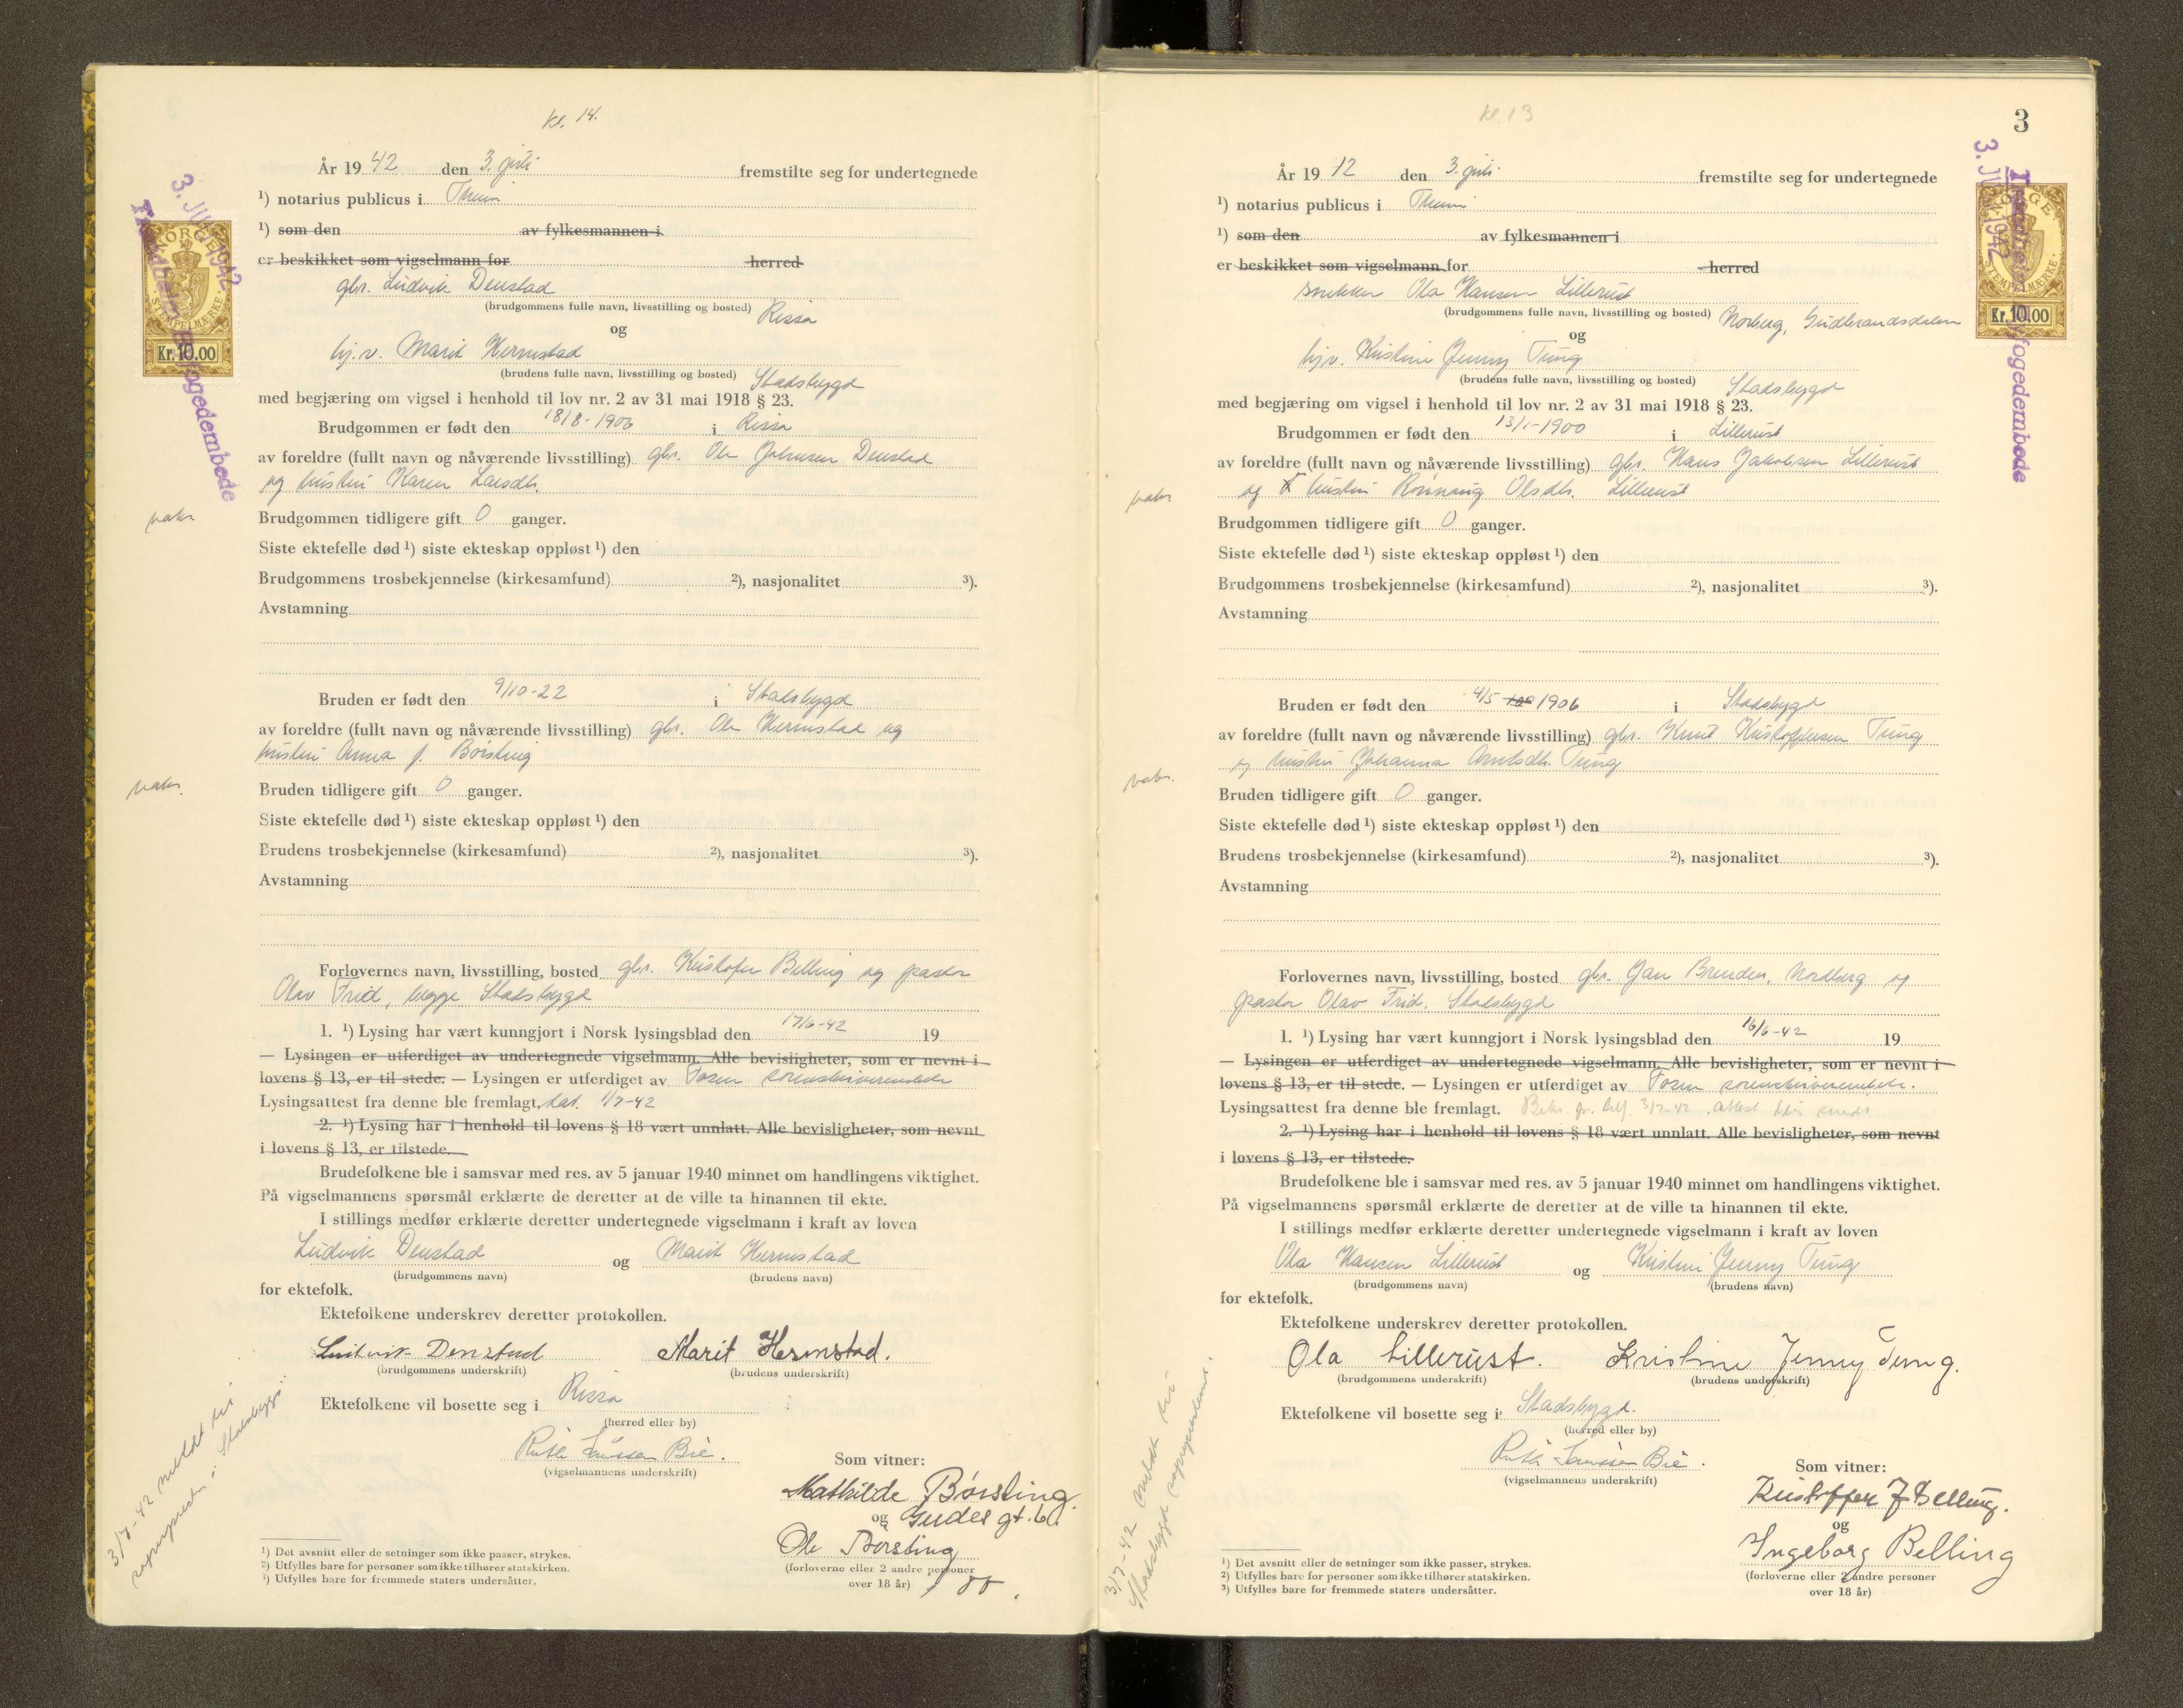 kl. 14.
År 19 42 den 3. juli fremstilte seg for undertegnede
¹) notarius publicus i Thum
¹) som den av fylkesmannen i
er beskikket som vigselmann for herred
gbr. Ludvik Denstad
(brudgommens fulle navn, livsstilling og bosted) Rissa
og
hj.v. Marit Hermstad
(brudens fulle navn, livsstilling og bosted) Stadsbygd
med begjæring om vigsel i henhold til lov nr. 2 av 31 mai 1918 § 23.
Brudgommen er født den 18/8-1906 i Rissa
av foreldre (fullt navn og nåværende livsstilling) gbr. Ole Johnsen Denstad
og hustru Karen Larsdtr.
vaks.
Brudgommen tidligere gift 0 ganger.
Siste ektefelle død ¹) siste ekteskap oppløst ¹) den
Brudgommens trosbekjennelse (kirkesamfund) ²), nasjonalitet ³).
Avstamning
Bruden er født den 9/10-22 i Stadsbygd
av foreldre (fullt navn og nåværende livsstilling) gbr. Ole Hermstad og
hustru Anna f. Børsting
vaks.
Bruden tidligere gift 0 ganger.
Siste ektefelle død ¹) siste ekteskap oppløst ¹) den
Brudens trosbekjennelse (kirkesamfund) ²), nasjonalitet ³).
Avstamning
Forlovernes navn, livsstilling, bosted gbr. Kristofer Belling og pastor
Olav Frid, begge Stadsbygd
1. ¹) Lysing har vært kunngjort i Norsk lysingsblad den 17/6-42 19
— Lysingen er utferdiget av undertegnede vigselmann. Alle bevisligheter, som er nevnt i
lovens § 13, er til stede. — Lysingen er utferdiget av Fosen sorenskriverembede
Lysingsattest fra denne ble fremlagt, dat. 1/7-42
2. ¹) Lysing har i henhold til lovens § 18 vært unnlatt. Alle bevisligheter, som nevnt
i lovens § 13, er tilstede.
Brudefolkene ble i samsvar med res. av 5 januar 1940 minnet om handlingens viktighet.
På vigselmannens spørsmål erklærte de deretter at de ville ta hinannen til ekte.
I stillings medfør erklærte deretter undertegnede vigselmann i kraft av loven
Ludvik Denstad og Marit Hermstad
(brudgommens navn) (brudens navn)
for ektefolk.
Ektefolkene underskrev deretter protokollen.
Ludvik Denstad Marit Hermstad.
(brudgommens underskrift) (brudens underskrift)
Ektefolkene vil bosette seg i Rissa
(herred eller by)
Ruth Janssen Bie.
(vigselmannens underskrift)
Som vitner:
Mathilde Børsting
og Gudes gt. 6.
Ole Børsting
(forloverne eller 2 andre personer
over 18 år)
3/7-42 meldt til
sognepresten i Stadsbygd
¹) Det avsnitt eller de setninger som ikke passer, strykes.
²) Utfylles bare for personer som ikke tilhører statskirken.
³) Utfylles bare for fremmede staters undersåtter.
3. JULI 1942
NORGE
STEMPELMERKE
Kr. 10.00
kl. 13
3
År 19 42 den 3. juli fremstilte seg for undertegnede
¹) notarius publicus i Thum
¹) som den av fylkesmannen i
er beskikket som vigselmann for herred
snekker Ola Hansen Lillerust
(brudgommens fulle navn, livsstilling og bosted) Norberg, Gudbrandsdalen
og
hj.v. Kristine Jenny Tung
(brudens fulle navn, livsstilling og bosted) Stadsbygd
med begjæring om vigsel i henhold til lov nr. 2 av 31 mai 1918 § 23.
Brudgommen er født den 13/1-1900 i Lillerust
av foreldre (fullt navn og nåværende livsstilling) gbr. Hans Jakobsen Lillerust
og hustru Rønnaug Olsdtr. Lillerust
vaks.
Brudgommen tidligere gift 0 ganger.
Siste ektefelle død ¹) siste ekteskap oppløst ¹) den
Brudgommens trosbekjennelse (kirkesamfund) ²), nasjonalitet ³).
Avstamning
Bruden er født den 4/5 1906 i Stadsbygd
av foreldre (fullt navn og nåværende livsstilling) gbr. Knut Kristoffersen Tung
og hustru Johanna Arntsdtr. Tung
vaks.
Bruden tidligere gift 0 ganger.
Siste ektefelle død ¹) siste ekteskap oppløst ¹) den
Brudens trosbekjennelse (kirkesamfund) ²), nasjonalitet ³).
Avstamning
Forlovernes navn, livsstilling, bosted gbr. Jan Brenden, Nordberg og
pastor Olav Frid, Stadsbygd
1. ¹) Lysing har vært kunngjort i Norsk lysingsblad den 16/6-42 19
— Lysingen er utferdiget av undertegnede vigselmann. Alle bevisligheter, som er nevnt i
lovens § 13, er til stede. — Lysingen er utferdiget av Fosen sorenskriverembede.
Lysingsattest fra denne ble fremlagt. Bekr. pr. telf. 3/7-42. attest blir sendt
2. ¹) Lysing har i henhold til lovens § 18 vært unnlatt. Alle bevisligheter, som nevnt
i lovens § 13, er tilstede.
Brudefolkene ble i samsvar med res. av 5 januar 1940 minnet om handlingens viktighet.
På vigselmannens spørsmål erklærte de deretter at de ville ta hinannen til ekte.
I stillings medfør erklærte deretter undertegnede vigselmann i kraft av loven
Ola Hansen Lillerust og Kristine Jenny Tung
(brudgommens navn) (brudens navn)
for ektefolk.
Ektefolkene underskrev deretter protokollen.
Ola Lillerust. Kristine Jenny Tung.
(brudgommens underskrift) (brudens underskrift)
Ektefolkene vil bosette seg i Stadsbygd.
(herred eller by)
Ruth Janssen Bie.
(vigselmannens underskrift)
Som vitner:
Kristoffer J Belling.
og
Ingeborg Belling
(forloverne eller 2 andre personer
over 18 år)
3/7-42 meldt til
Stadsbygd sogneprestemb.
¹) Det avsnitt eller de setninger som ikke passer, strykes.
²) Utfylles bare for personer som ikke tilhører statskirken.
³) Utfylles bare for fremmede staters undersåtter.
3. JULI 1942
NORGE
STEMPELMERKE
Kr. 10.00